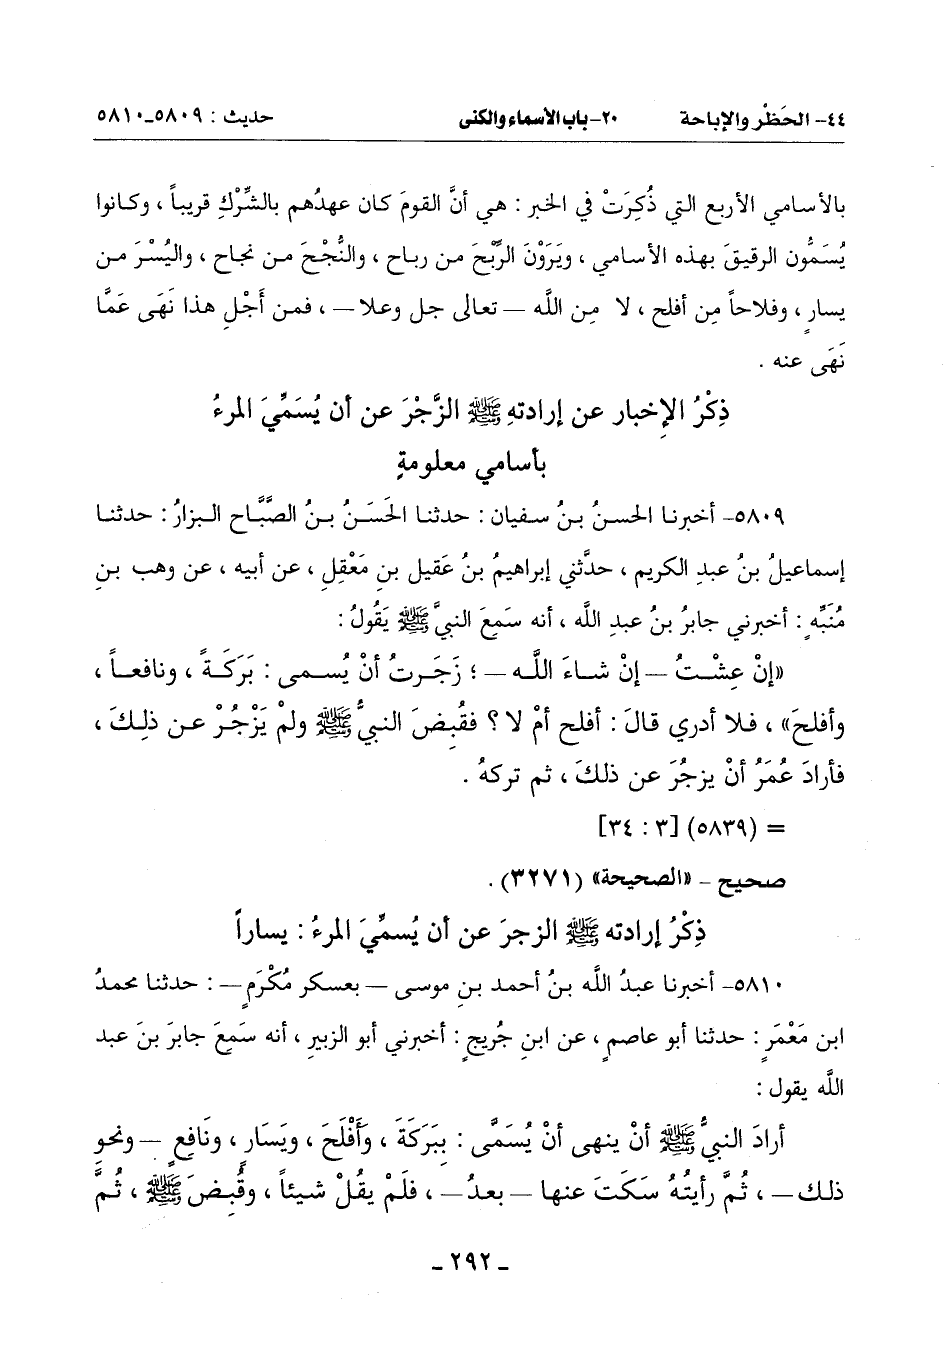 ٤٤- الحَظْر والإباحة ٢٠- باب الأسماء والكنى حديث : ٥٨٠٩-٥٨١٠
بالأسامي الأربع التي ذُكِرَتْ في الخبر : هي أنَّ القومَ كان عهدُهم بالشِّرْكِ قريباً ، وكانوا
يُسَمُّون الرقيقَ بهذه الأسامي ، ويَرَوْنَ الرِّبْحَ من رباح ، والنُّجْحَ من نجاح ، واليُسْرَ من
يسارٍ ، وفلاحاً مِن أفلح ، لا مِن اللَّه – تعالى جل وعلا – ، فمن أَجْلِ هذا نَهَى عَمَّا
نَهَى عنه .
ذِكْرُ الإخبار عن إرادتهِ ﷺ الزَّجْرَ عن أن يُسَمِّيَ المرءُ
بأسامي معلومةٍ
٥٨٠٩- أخبرنا الحسنُ بنُ سفيان : حدثنا الحَسَنُ بنُ الصَّبَّاح البزارُ : حدثنا
إسماعيلُ بنُ عبدِ الكريم ، حدَّثني إبراهيمُ بنُ عَقيل بنِ مَعْقِلٍ ، عن أبيه ، عن وهب بنِ
مُنَبِّهٍ : أخبرني جابرُ بنُ عبدِ اللَّه ، أنه سَمِعَ النبيَّ ﷺ يَقُولُ :
«إنْ عِشْتُ – إنْ شاءَ اللَّه – ؛ زَجَرتُ أنْ يُسمى : بَرَكَةً ، ونافعاً ،
وأفلحَ» ، فلا أدري قالَ : أفلح أمْ لا ؟ فقُبِضَ النبيُّ ﷺ ولمْ يَزْجُرْ عن ذلِكَ ،
فأرادَ عُمَرُ أنْ يزجُرَ عن ذلكَ ، ثم تركهُ .
= (٥٨٣٩) [٣ : ٣٤]
صحيح - «الصحيحة» (٣٢٧١) .
ذِكْرُ إرادته ﷺ الزجرَ عن أن يُسمِّيَ المرءُ : يساراً
٥٨١٠- أخبرنا عبدُ اللَّه بنُ أحمد بنِ موسى – بعسكر مُكْرَمٍ – : حدثنا محمدُ
ابن مَعْمَرٍ : حدثنا أبو عاصمٍ ، عن ابنِ جُريجٍ : أخبرني أبو الزبيرِ ، أنه سَمِعَ جابرَ بنَ عبد
اللَّه يقول :
أرادَ النبيُّ ﷺ أنْ ينهى أنْ يُسَمَّى : بِبَرَكَةَ ، وَأَفْلَحَ ، ويَسَارٍ ، ونَافعٍ – ونحو
ذلك – ، ثُمَّ رأيتُهُ سَكَتَ عنها – بعدُ – ، فلَمْ يقُلْ شيئاً ، وقُبِضَ ﷺ ، ثُمَّ
- ٢٩٢ -